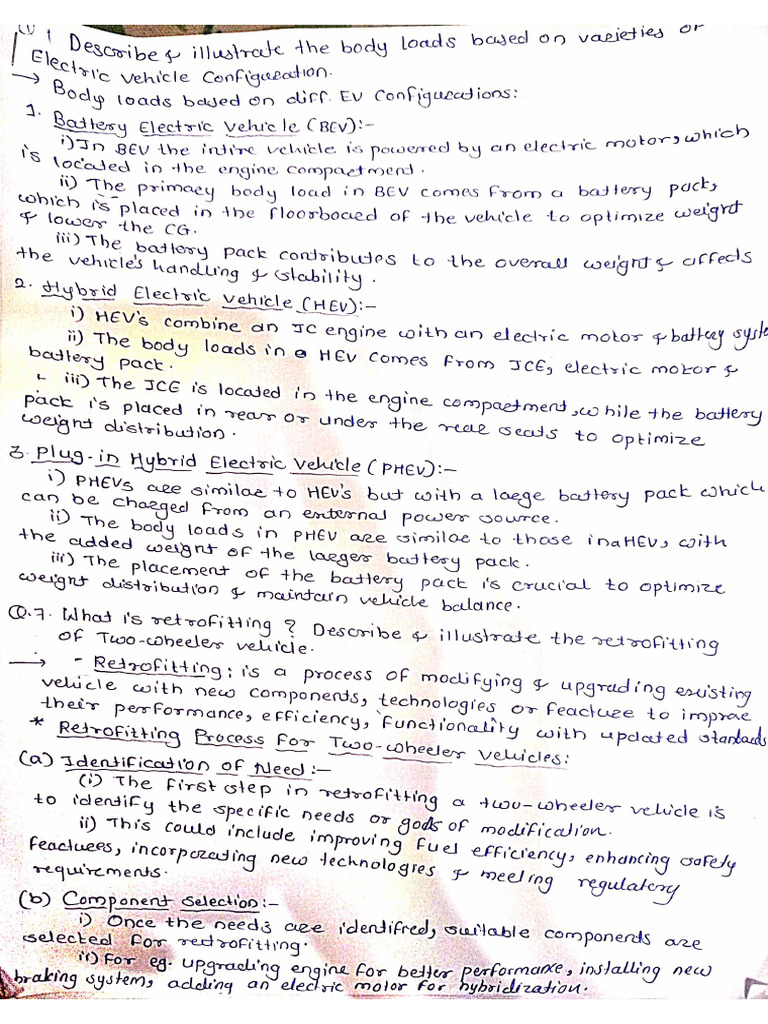 Describe & illustrate the body loads based on varieties of
Electric vehicle Configuration.
→ Body loads based on diff. EV Configurations:
1. Battery Electric Vehicle (BEV):-
i) In BEV the intire vehicle is powered by an electric motor, which
is located in the engine compactment.
ii) The primacy body load in BEV comes from a battery pack,
which is placed in the floorboard of the vehicle to optimize weight
& lower the CG.
iii) The battery pack contributes to the overall weight & affects
the vehicle's handling & stability.
2. Hybrid Electric Vehicle (HEV):-
i) HEV's combine an IC engine with an electric motor & battery syste
ii) The body loads in a HEV comes from ICE, electric motor &
battery pack.
iii) The ICE is located in the engine compactment, while the battery
pack is placed in rear or under the rear seats to optimize
weight distribution.
3. Plug-in Hybrid Electric Vehicle (PHEV):-
i) PHEVs are similar to HEV's but with a large battery pack which
can be charged from an external power source.
ii) The body loads in PHEV are similar to those in a HEV, with
the added weight of the larger battery pack.
iii) The placement of the battery pack is crucial to optimize
weight distribution & maintain vehicle balance.
Q.7. What is retrofitting? Describe & illustrate the retrofitting
of Two-wheeler vehicle.
→ - Retrofitting: is a process of modifying & upgrading existing
vehicle with new components, technologies or feacture to improve
their performance, efficiency, functionality with updated standards
* Retrofitting Process for Two-wheeler Vehicles:
(a) Identification of Need:-
(i) The first step in retrofitting a two-wheeler vehicle is
to identify the specific needs or gods of modification.
ii) This could include improving fuel efficiency, enhancing safety
feactures, incorporating new technologies & meeting regulatory
requirements.
(b) Component Selection:-
i) Once the needs are identified, suitable components are
selected for retrofitting.
ii) For eg. upgrading engine for better performance, installing new
braking system, adding an electric motor for hybridization.